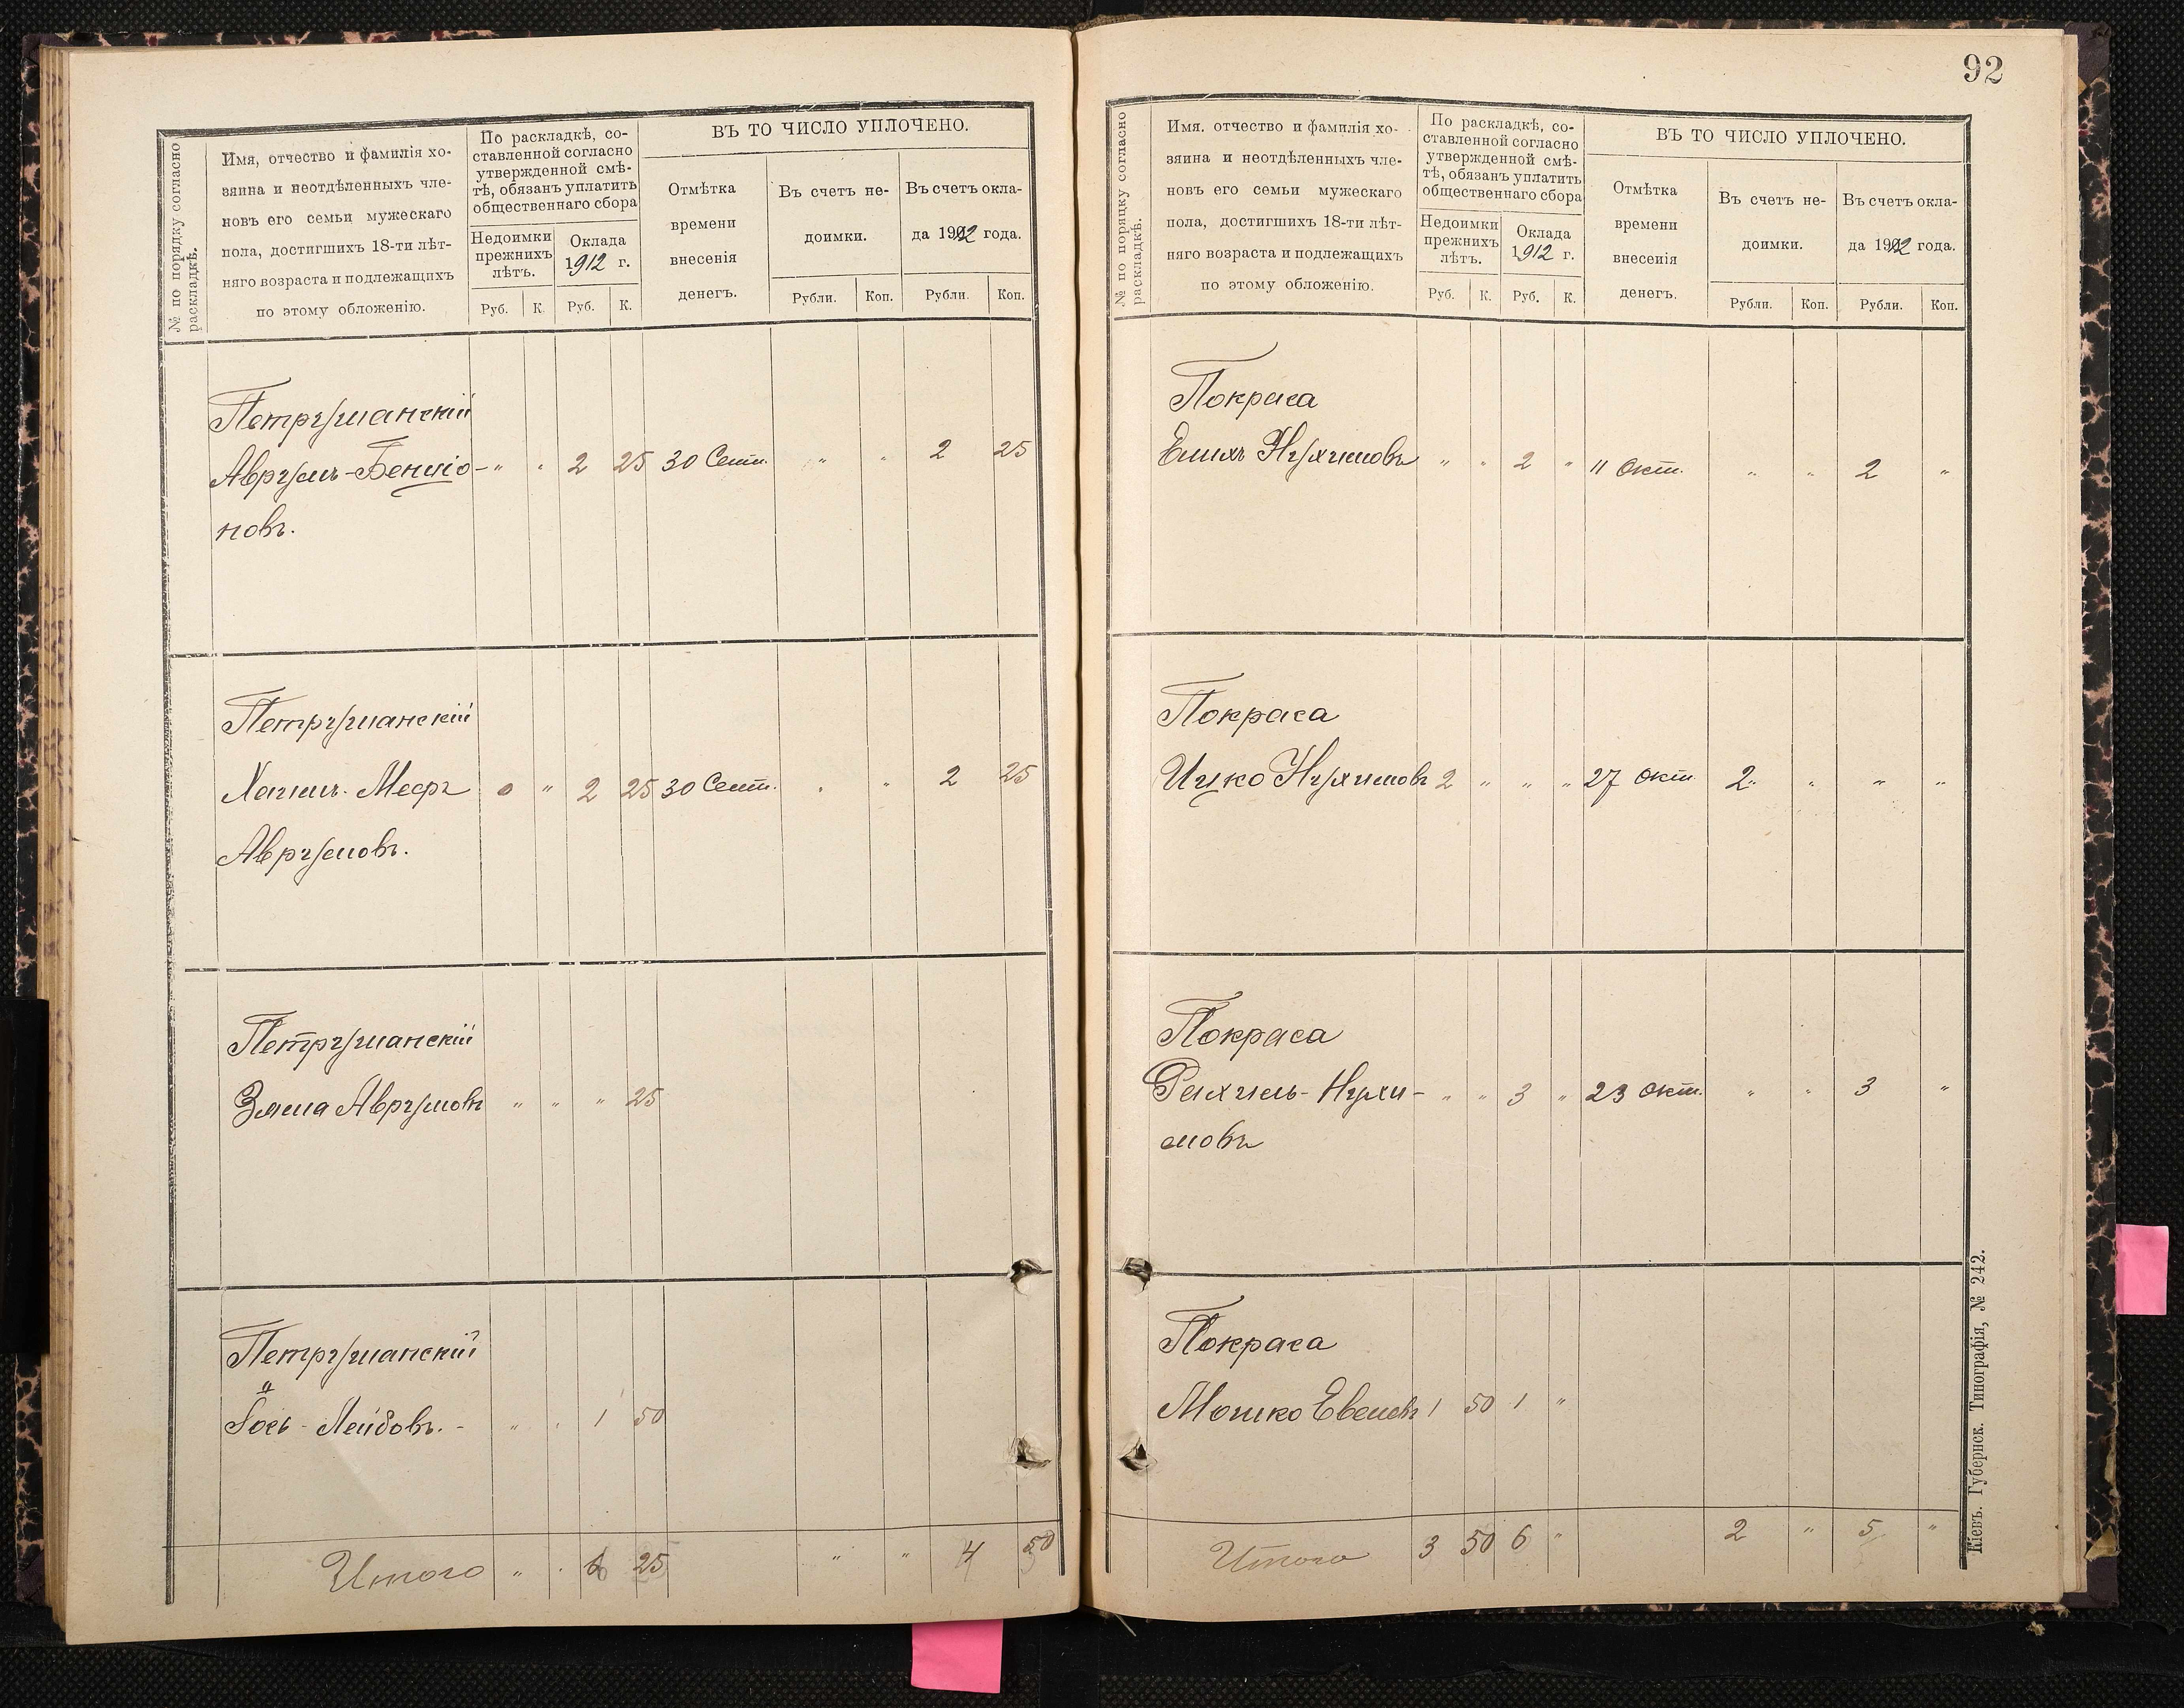 № по порядку согласно
раскладкѣ.
Имя, отчество и фамилія хо-
зяина и неотдѣленныхъ чле-
новъ его семьи мужескаго
пола, достигшихъ 18-ти лѣт-
няго возраста и подлежащихъ
по этому обложенію.
По раскладкѣ, со-
ставленной согласно
утвержденной смѣ-
тѣ, обязанъ уплатить
общественнаго сбора
Недоимки
прежнихъ
лѣтъ.
Оклада
1912 г.
Руб. К. Руб. К.
ВЪ ТО ЧИСЛО УПЛОЧЕНО.
Отмѣтка
времени
внесенія
денегъ.
Въ счетъ не-
доимки.
Въ счетъ окла-
да 1912 года.
Рубли. Коп. Рубли. Коп.
Петрушанскій
Аврумъ-Бенціо- " " 2 25 30 Сент. " " 2 25
новъ.
Петрушанскій
Хаимъ-Меер 0 " 2 25 30 Сент. " " 2 25
Аврумовъ.
Петрушанскій
Зяма Аврумовъ " " " 25
Петрушанскій
Іось-Лейбовъ.- " " 1 50
Итого " " 6 25 " " 4 50
92
№ по порядку согласно
раскладкѣ.
Имя. отчество и фамилія хо-
зяина и неотдѣленныхъ чле-
новъ его семьи мужескаго
пола, достигшихъ 18-ти лѣт-
няго возраста и подлежащихъ
по этому обложенію.
По раскладкѣ, со-
ставленной согласно
утвержденной смѣ-
тѣ, обязанъ уплатить
общественнаго сбора
Недоимки
прежнихъ
лѣтъ.
Оклада
1912 г.
Руб. К. Руб. К.
ВЪ ТО ЧИСЛО УПЛОЧЕНО.
Отмѣтка
времени
внесенія
денегъ.
Въ счетъ не-
доимки.
Въ счетъ окла-
да 1912 года.
Рубли. Коп. Рубли. Коп.
Покраса
Нухимовъ " " 2 " 11 Окт. " " 2 "
Покраса
Ицко Нухимовъ 2 " " " 27 Окт. 2 " " "
Покраса
Рахмиль-Нухи- " " 3 " 23 Окт. " " 3 "
мовъ
Покраса
Мошко 1 50 1 "
Итого 3 50 6 " 2 " 5 "
Кіевъ. Губернск. Типографія, № 242.